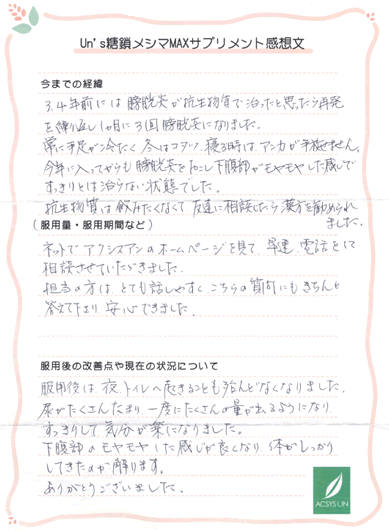 Un's糖鎖メシマMAXサプリメント感想文
今までの経緯
3.4年前には膀胱炎が抗生物質で治ったと思ったら再発
を繰り返し1ヶ月に3回膀胱炎になりました。
常に手足が冷たく冬はコタツ、寝る時はアンカが手放せません。
今年に入ってからも膀胱炎を おこし下腹部がモヤモヤした感じで
すっきりとは治らない状態でした。
抗生物質は飲みたくなくて友達に相談したら漢方を勧められ
ました。
(服用量・服用期間など)
ネットでアクシスアンのホームページを見て、早速、電話をして
相談させていただきました。
担当の方は、とても話しやすく こちらの質問にもきちんと
答えて下さり安心できました。
服用後の改善点や現在の状況について
服用後は、夜、トイレへ起きることも殆んどなくなりました。
尿がたくさんたまり一度にたくさんの量が出るようになり
すっきりして気分が楽になりました。
下腹部のモヤモヤした感じが良くなり体がしっかり
してきたのが解ります。
ありがとうございました。
ACSYS UN